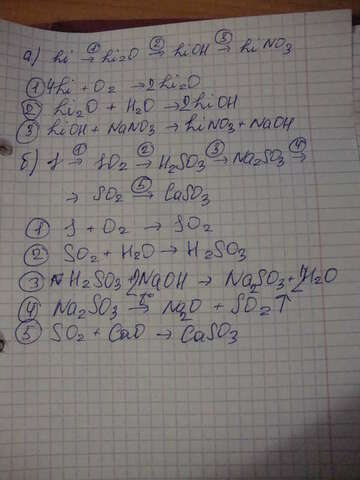 а) Li →① Li₂O →② LiOH →③ LiNO₃
① 4Li + O₂ → 2Li₂O
② Li₂O + H₂O → 2LiOH
③ LiOH + NaNO₃ → LiNO₃ + NaOH
б) S →① SO₂ →② H₂SO₃ →③ Na₂SO₃ →④
→ SO₂ →⑤ CaSO₃
① S + O₂ → SO₂
② SO₂ + H₂O → H₂SO₃
③ H₂SO₃ 2NaOH → Na₂SO₃ + 2H₂O
④ Na₂SO₃ →t° Na₂O + SO₂↑
⑤ SO₂ + CaO → CaSO₃